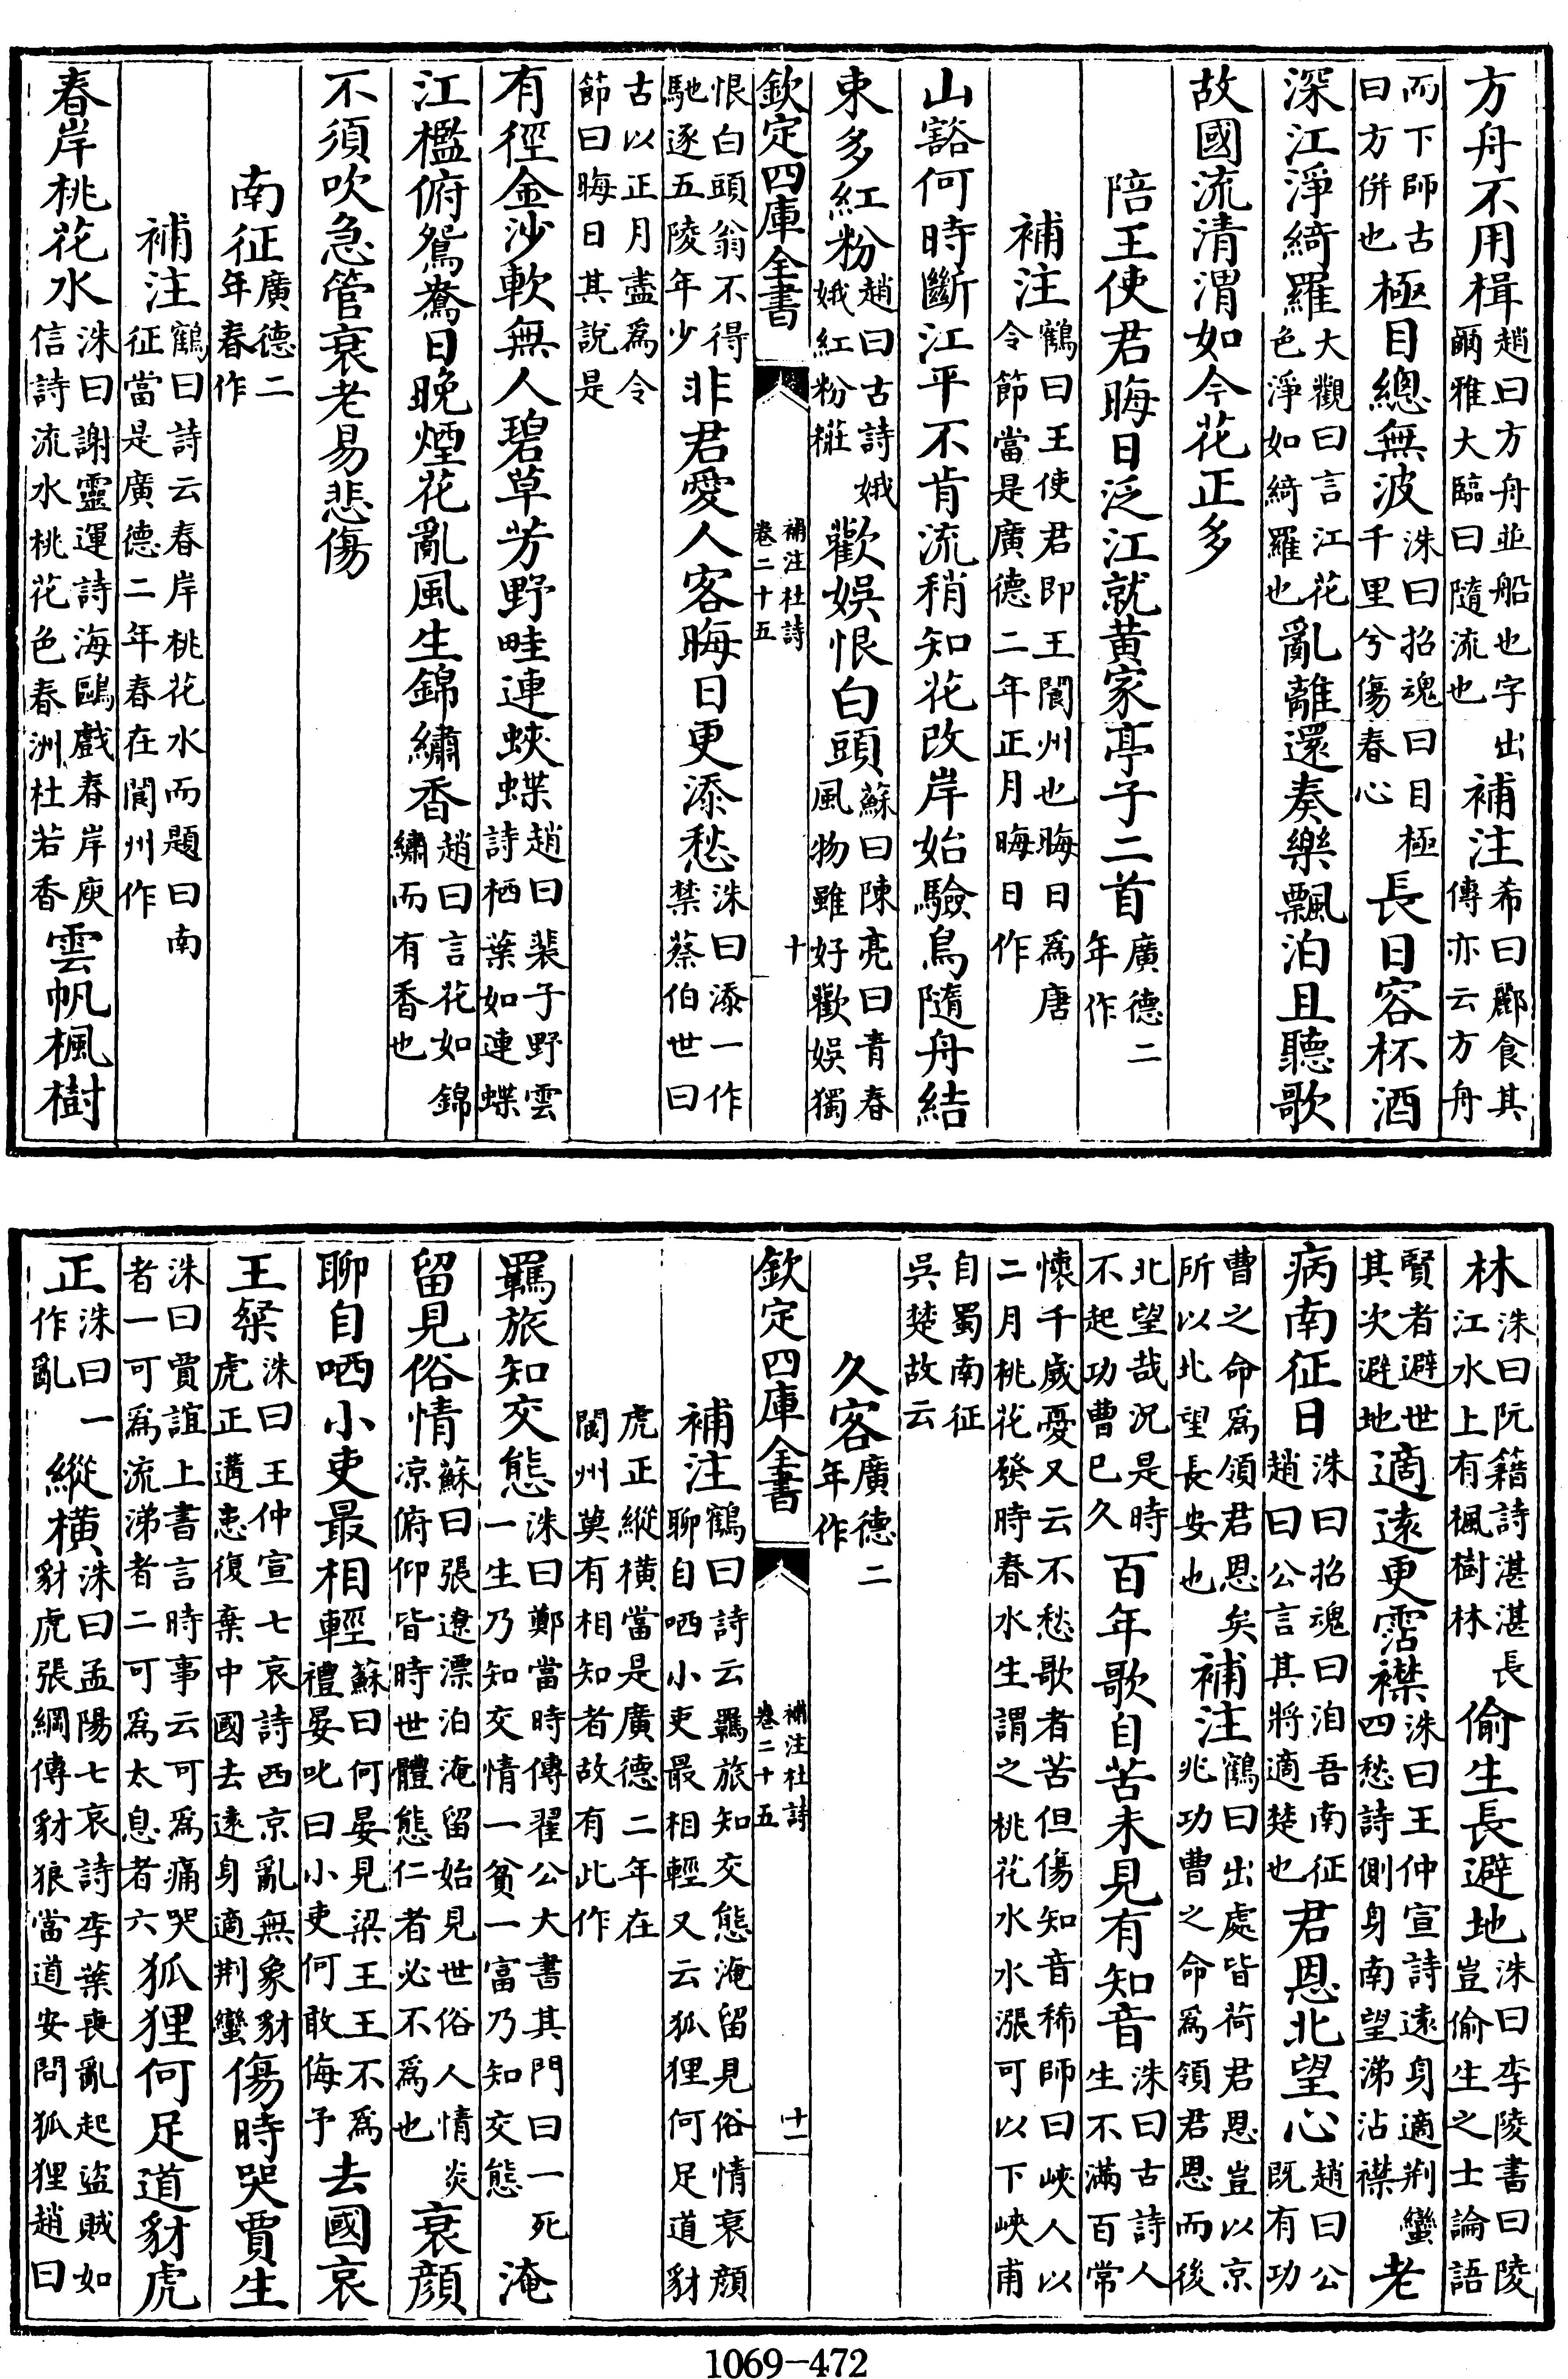 方舟不用楫趙曰方舟並船也字出爾雅大臨曰隨流也補注希曰酈食其傳亦云方舟
而下師古曰方併也極目總無波洙曰招魂曰目極千里兮傷春心長日容杯酒
深江淨綺羅大觀曰言江花色淨如綺羅也亂離還奏樂飄泊且聽歌
故國流清渭如今花正多
陪王使君晦日泛江就黄家亭子二首廣德二年作
補注鶴曰王使君即王閬州也晦日為唐令節當是廣德二年正月晦日作
山豁何時斷江平不肯流稍知花改岸始驗鳥隨舟結
束多紅粉趙曰古詩娥娥紅粉糚歡娛恨白頭蘇曰陳亮曰青春風物雖好歡娛獨
欽定四庫全書 補注杜詩卷二十五 十
恨白頭翁不得馳逐五陵年少非君愛人客晦日更添愁洙曰添一作禁蔡伯世曰
古以正月盡為令節曰晦日其說是
有徑金沙軟無人碧草芳野畦連蛺蝶趙曰裴子野雲詩栖葉如連蝶
江檻俯鴛鴦日晚煙花亂風生錦繡香趙曰言花如錦繡而有香也
不須吹急管衰老易悲傷
南征廣德二年春作
補注鶴曰詩云春岸桃花水而題曰南征當是廣德二年春在閬州作
春岸桃花水洙曰謝靈運詩海鷗戲春岸庾信詩流水桃花色春洲杜若香雲帆楓樹
林洙曰阮籍詩湛湛長江水上有楓樹林偷生長避地洙曰李陵書曰陵豈偷生之士論語
賢者避世其次避地適遠更霑襟洙曰王仲宣詩遠身適荆蠻四愁詩側身南望涕沾襟老
病南征日洙曰招魂曰汨吾南征趙曰公言其將適楚也君恩北望心趙曰公既有功
曹之命為領君恩矣所以北望長安也補注鶴曰出處皆荷君恩豈以京兆功曹之命為領君恩而後
北望哉況是時不起功曹已久百年歌自苦未見有知音洙曰古詩人生不滿百常
懷千歲憂又云不愁歌者苦但傷知音稀師曰峽人以二月桃花發時春水生謂之桃花水水漲可以下峽甫
自蜀南征吳楚故云
久客廣德二年作
欽定四庫全書 補注杜詩卷二十五 十一
補注鶴曰詩云羈旅知交態淹留見俗情衰顔聊自哂小吏最相輕又云狐狸何足道豺
虎正縱橫當是廣德二年在閬州莫有相知者故有此作
羈旅知交態洙曰鄭當時傳翟公大書其門曰一死一生乃知交情一貧一富乃知交態淹
留見俗情蘇曰張遼漂泊淹留始見世俗人情炎凉俯仰皆時世體態仁者必不為也衰顔
聊自哂小吏最相輕蘇曰何晏見梁王王不為禮晏叱曰小吏何敢侮予去國哀
王粲洙曰王仲宣七哀詩西京亂無象豺虎正遘患復棄中國去遠身適荆蠻傷時哭賈生
洙曰賈誼上書言時事云可為痛哭者一可為流涕者二可為太息者六狐狸何足道豺虎
正洙曰一作亂縱橫洙曰孟陽七哀詩李葉喪亂起盜賊如豺虎張綱傳豺狼當道安問狐狸趙曰
1069—472